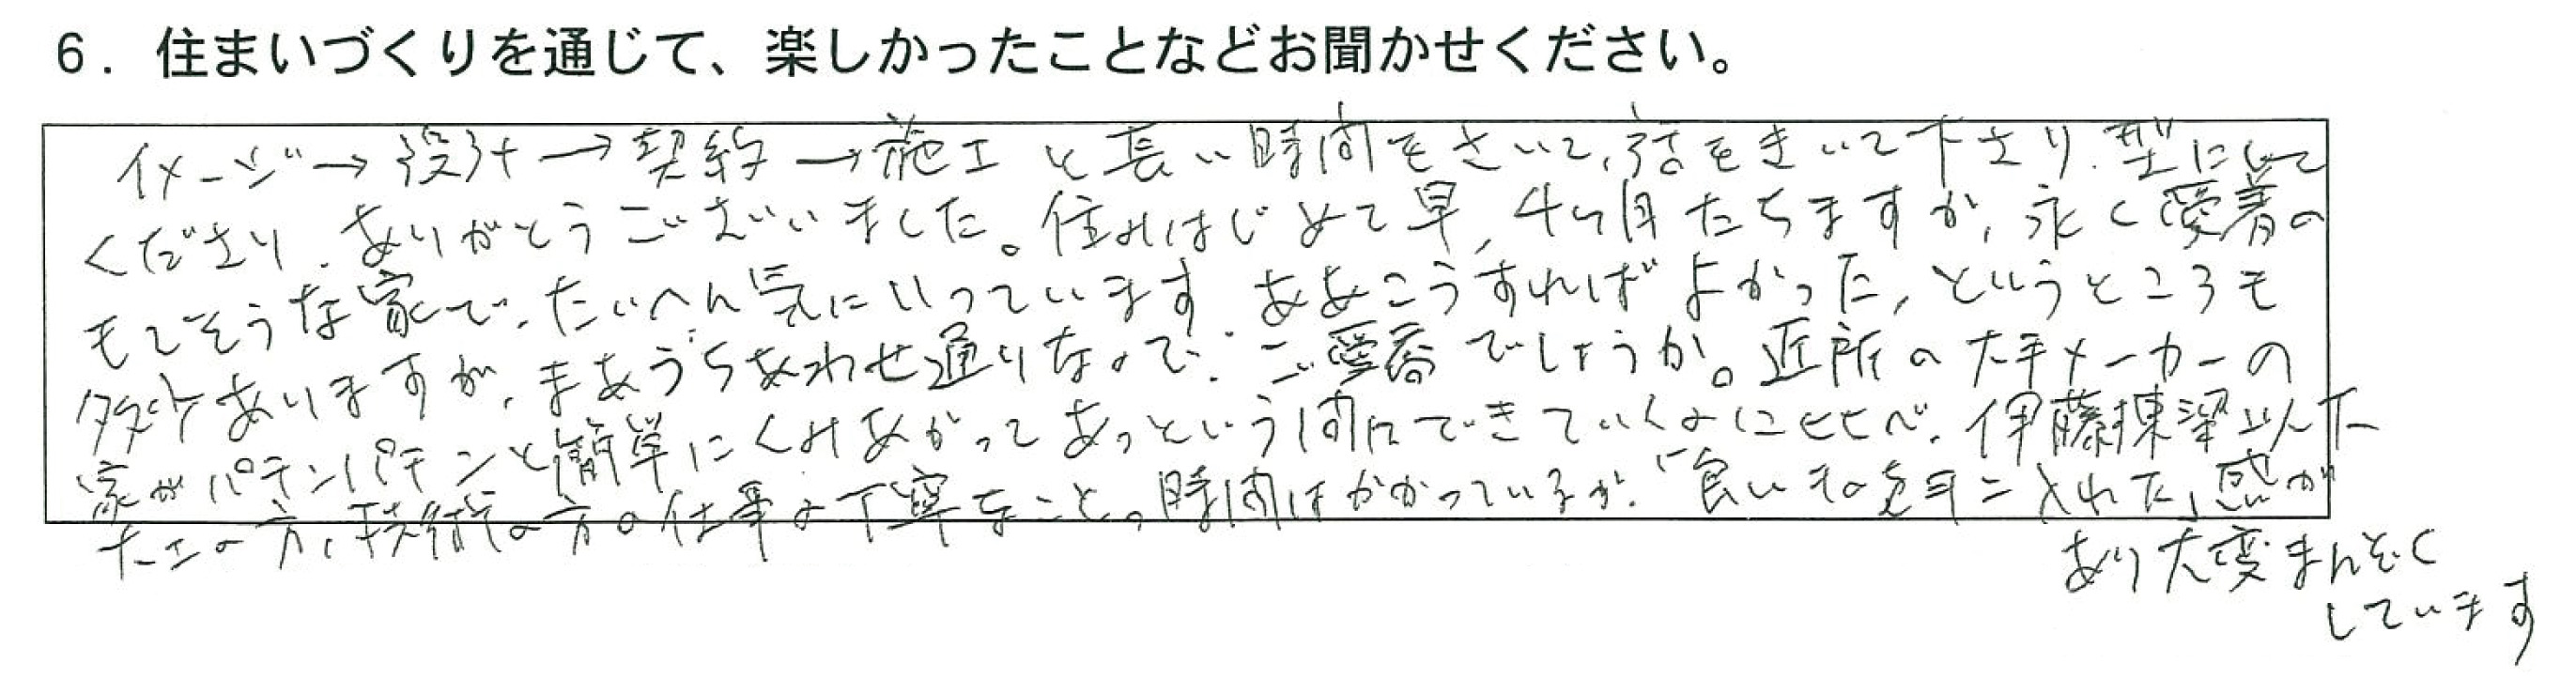 6. 住まいづくりを通じて、楽しかったことなどお聞かせください。
イメージ→設計→契約→施工と長い時間をさいて、話をきいて下さり、型にして
くださり、ありがとうございました。住みはじめて早、4ヶ月たちますが、永く愛着の
もてそうな家で、たいへん気にいっています。ああこうすればよかった、というところも
多少ありますが、まあうちあわせ通りなので、ご愛嬌でしょうか。近所の大手メーカーの
家がパチンパチンと簡単にくみあがってあっという間にできていくのに比べ、伊藤棟梁以下
大工の方、技術の方の仕事の丁寧なこと。時間はかかっているが、「良いものを手に入れた」感が
あり大変まんぞく
しています